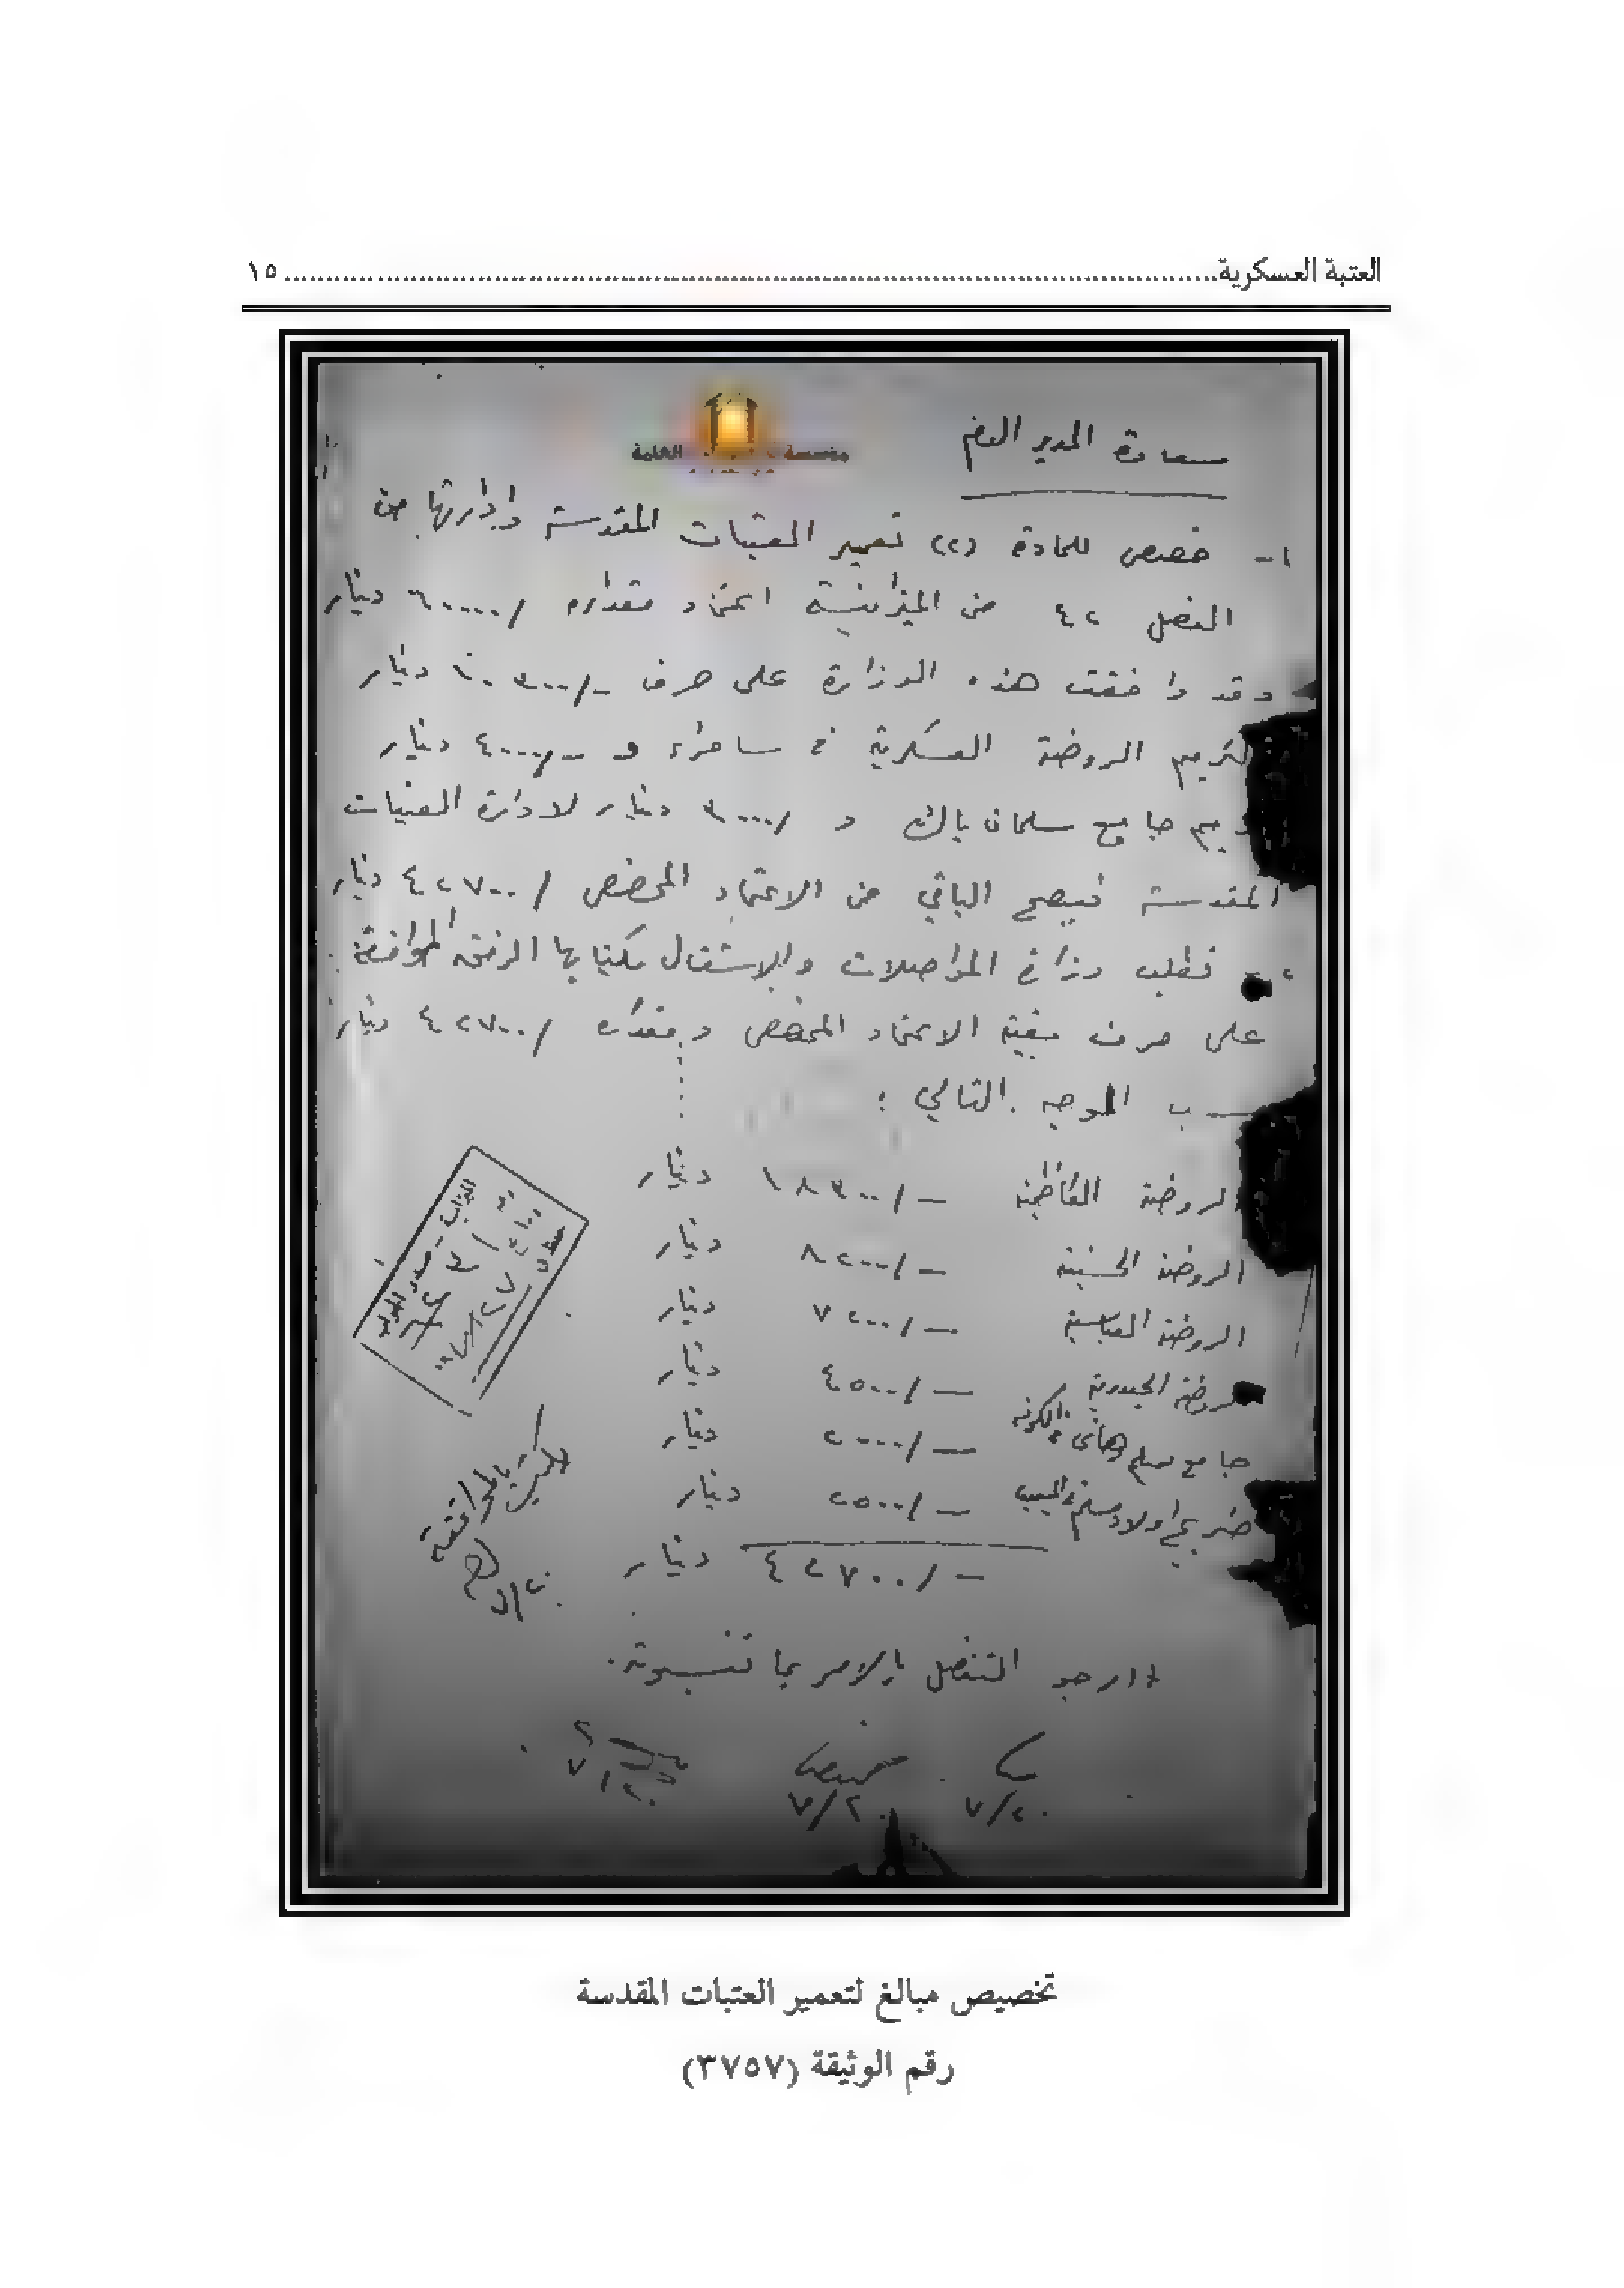 العتبة العسكرية ........ ١٥
مؤسسة العامة
سعادة المدير العام
١- خصص للمادة (٢) تعمير العتبات المقدسة وادارتها من
الفصل ٤٢ من الميزانية اعتماد مقداره /٦٠٠٠٠ دينار
وقد وافقت هذه الوزارة على صرف -/١٠٣٠٠ دينار
لترميم الروضة العسكرية في سامراء و -/٤٠٠٠ دينار
جامع سلمان باك و /٣٠٠٠ دينار لادارة العتبات
المقدسة فيصبح الباقي من الاعتماد المخصص /٤٢٧٠٠ دينار
٢- تطلب وزارة المواصلات والاشغال بكتابها المرفق الموافقة
على صرف بقية الاعتماد المخصص ومقداره /٤٢٧٠٠ دينار
الوجه التالي :
الروضة الكاظمية -/١٨٣٠٠ دينار
الروضة الحسينية -/٨٢٠٠ دينار
الروضة العباسية -/٧٢٠٠ دينار
الروضة الحيدرية -/٤٥٠٠ دينار
جامع مسلم وهاني في الكوفة -/٢٠٠٠ دينار
ضريح اولاد مسلم في المسيب -/٢٥٠٠ دينار
-/٤٢٧٠٠ دينار
ارجو التفضل بالامر بما تنسبونه.
٧/٢٠ ٧/٢٠ ٧/٢٠
تخصيص مبالغ لتعمير العتبات المقدسة
رقم الوثيقة (٣٧٥٧)